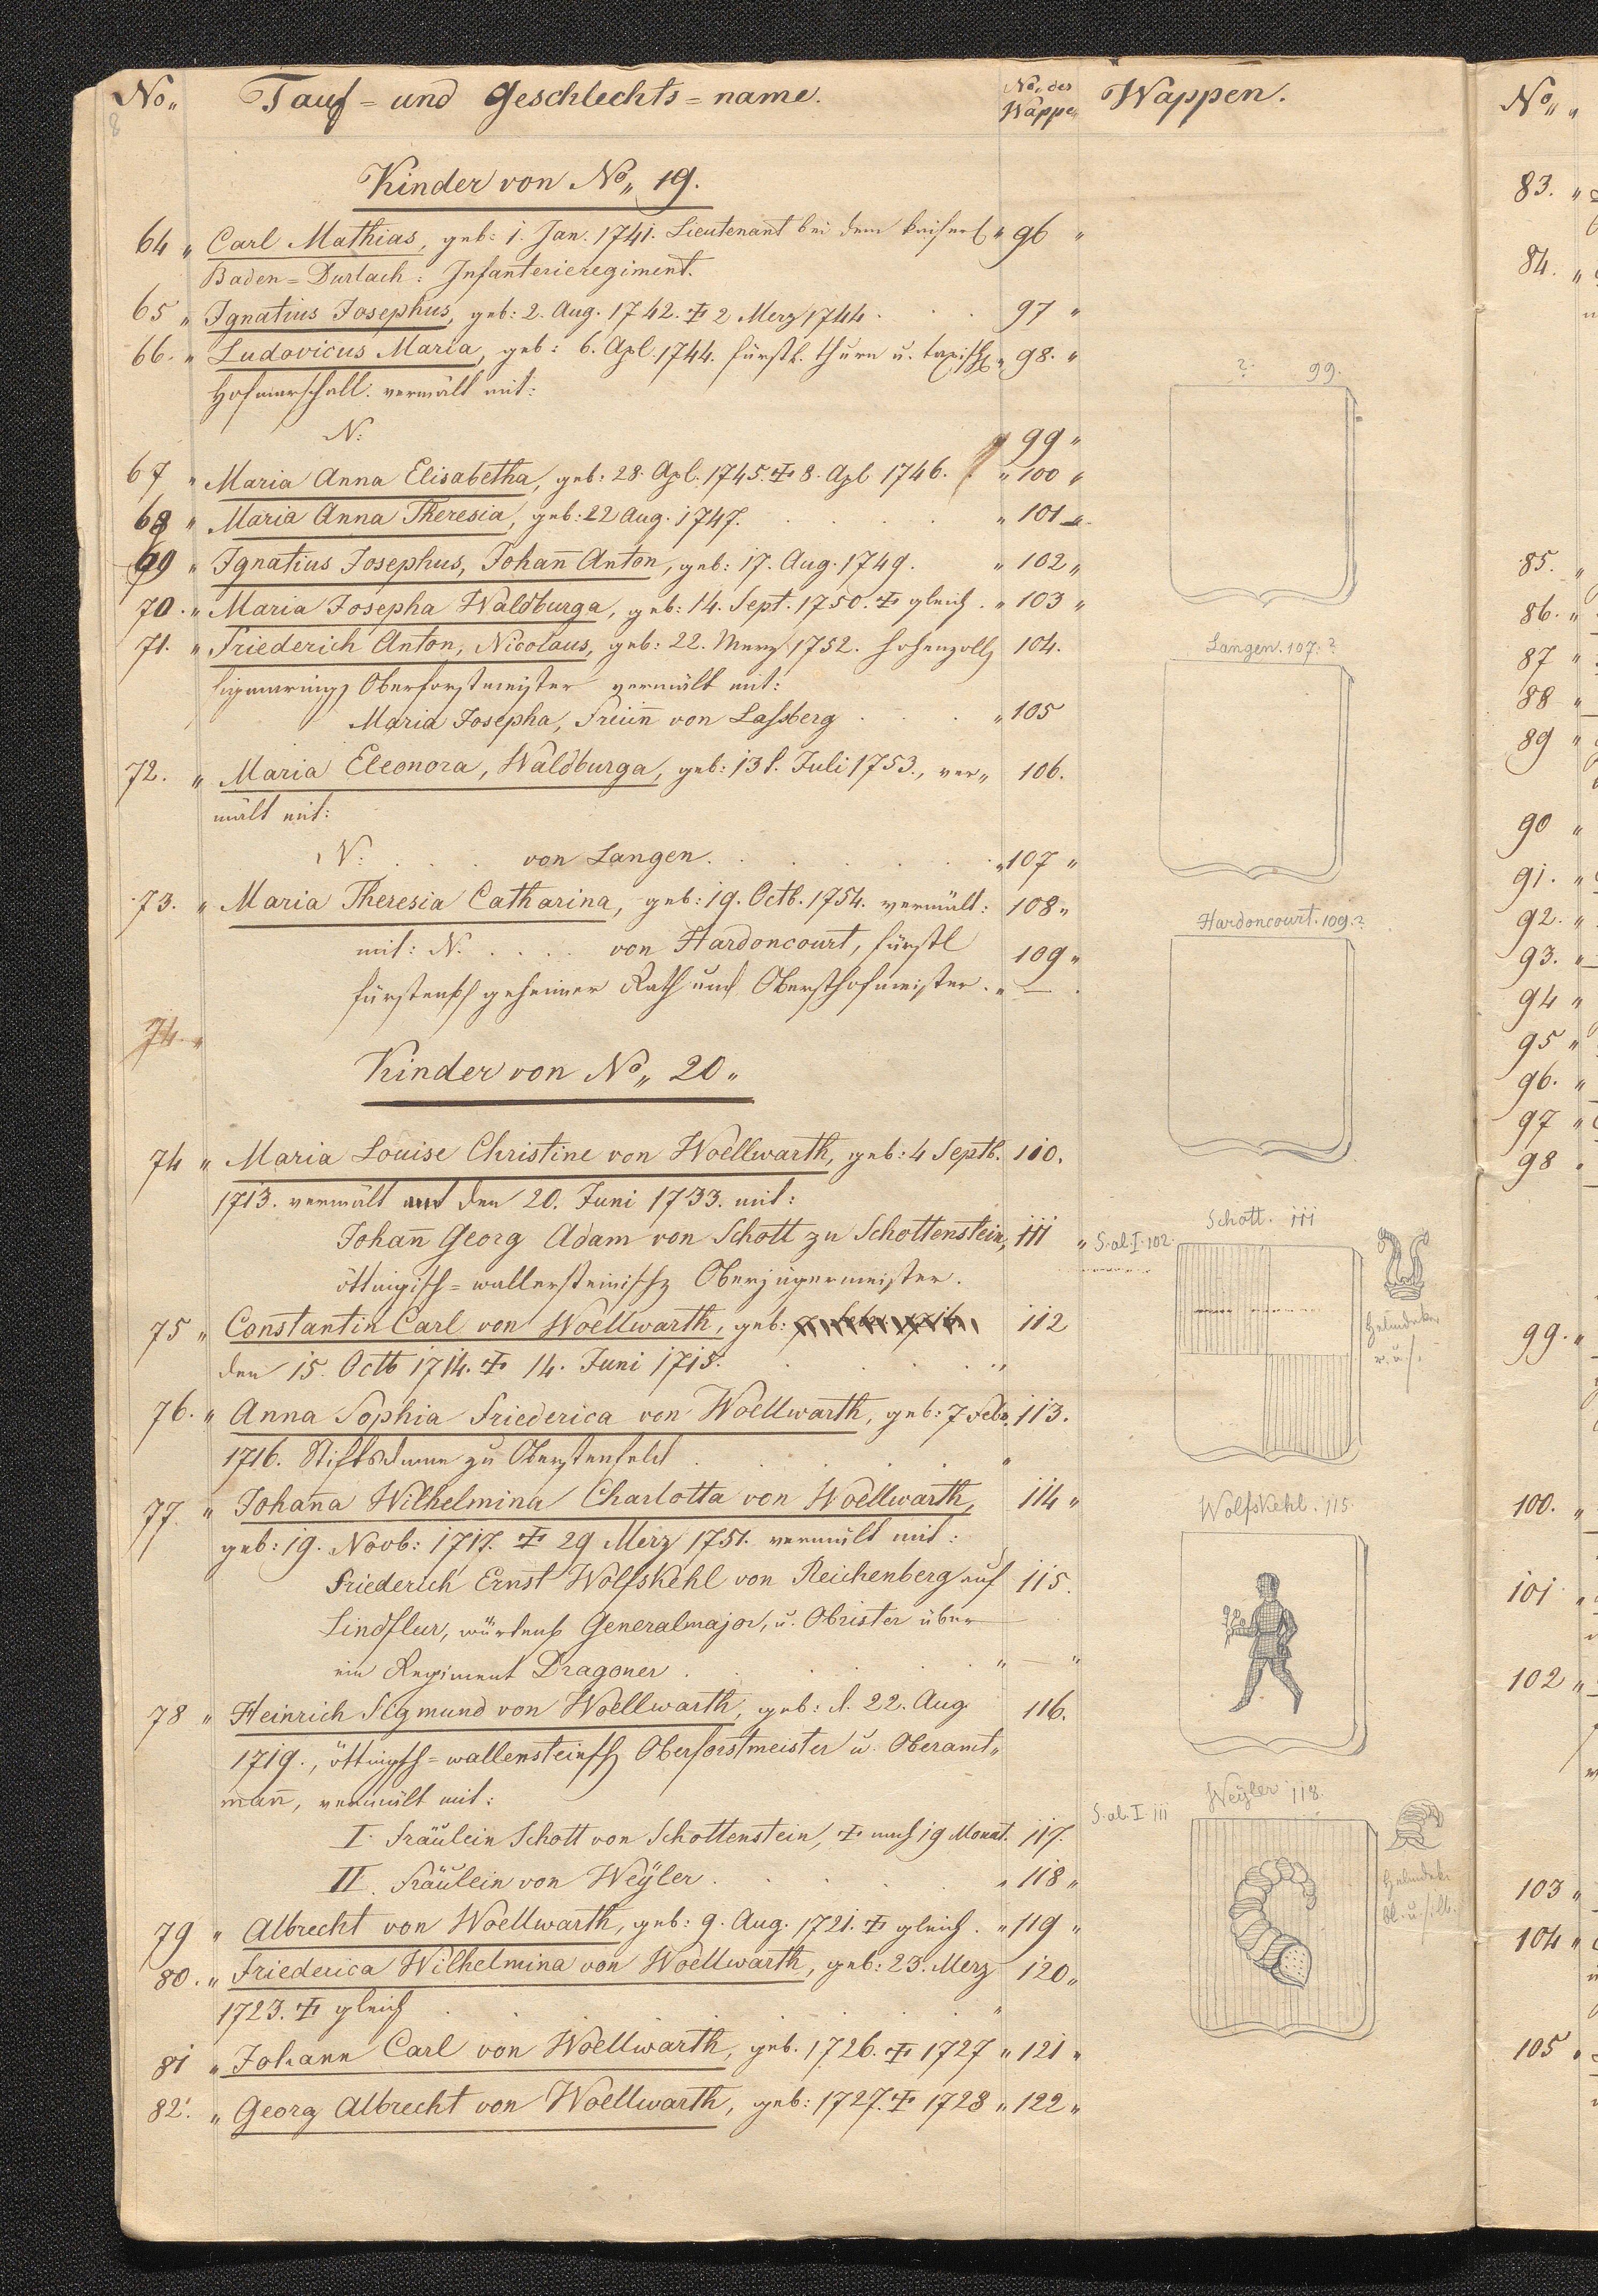 No„ Tauf = und Geschlechts = name. No„ der Wappen Wappen.
8
Kinder von No„ 19.
64 „ Carl Mathias, geb: 1. Jan. 1741. Lieutenant bei dem kaiserl „ 96 „
Baden = Durlach: Infanterieregiment.
65 „ Ignatius Josephus, geb: 2. Aug. 1742. ✝ 2 Merz 1744 . . . 97 „
66. „ Ludovicus Maria, geb: 6. Apl. 1744. fürstl. thurn u. taxisch „ 98. „
Hofmarschall. vermält mit:
N: 99 „
67 „ Maria Anna Elisabetha, geb: 28. Apl. 1745. ✝ 8. Apl 1746. „ 100 „
68 „ Maria Anna Theresia, geb: 22 Aug. 1747. . . . „ 101 „
69 „ Ignatius Josephus, Johan̄ Anton, geb: 17. Aug. 1749. „ 102 „
70. „ Maria Josepha Waldburga, geb: 14. Sept. 1750. ✝ gleich. „ 103 „
71. „ Friederich Anton, Nicolaus, geb: 22. Merz 1752. hohenzoll 104.
sigmaring Oberforstmeister vermält mit:
Maria Josepha, Freiin̄ von Lassberg . . . „ 105
72. „ Maria Eleonora, Waldburga, geb: 13 t. Juli 1753., ver„ 106.
mält mit:
N: . . . von Langen. . . . „ 107 „
73. „ Maria Theresia Catharina, geb: 19. Octb. 1754. vermält: 108 „
mit: N. . . . . von Hardoncourt, fürstl 109 „
fürstenb geheimer Rath und Obersthofmeister. „ —
74. „
Kinder von No„ 20 „
74 „ Maria Louise Christine von Woellwarth, geb: 4 Septb. 110.
1713. vermält den 20. Juni 1733. mit:
Johan̄ Georg Adam von Schott zu Schottenstein, 111 „
öttingisch = wallersteinisch Oberjägermeister.
75 „ Constantin Carl von Woellwarth, geb: 112
den 15. Octb 1714. ✝ 14. Juni 1715. . . . „
76. „ Anna Sophia Friederica von Woellwarth, geb: 7 Feb. 113.
1716. Stiftsdame zu Oberstenfeld . . . „
77. „ Johan̄a Wilhelmina Charlotta von Woellwarth, 114 „
geb: 19. Novb: 1717. ✝ 29 Merz 1751. vermält mit:
Friederich Ernst Wolfskehl von Reichenberg auf 115.
Lindflur, würtenb Generalmajor, u. Obrister über
ein Regiment Dragoner . . . „ — „
78 „ Heinrich Sigmund von Woellwarth, geb: d. 22. Aug 116.
1719., öttingsch = wallensteinsch Oberforstmeister u. Oberamt„
man̄, vermält mit:
I. Fräulein Schott von Schottenstein, ✝ nach 19 Monat. 117.
II. Fräulein von Weÿler . . . „ 118 „
79 „ Albrecht von Woellwarth, geb: 9. Aug. 1721. ✝ gleich. „ 119 „
80. „ Friederica Wilhelmina von Woellwarth, geb: 23. Merz 120 „
1723. ✝ gleich . . . „
81 „ Johann Carl von Woellwarth, geb. 1726. ✝ 1727 „ 121 „
82. „ Georg Albrecht von Woellwarth, geb: 1727. ✝ 1728 „ 122 „
? 99.
Langen. 107. ?
Hardoncourt. 109. ?
Schott. 111
S. ab. I. 102.
Helmdeken
r. u. s.
Wolfskehl. 115.
Weÿler 118.
S. ab. I 111
Helmdeke
bl. u. silb.
No„ „
83. „
84. „
85. „
86. „
87 „
88 „
89 „
90 „
91. „
92. „
93. „
94 „
95 „
96. „
97 „
98 „
99. „
100. „
101 „
102 „
103 „
104 „
105 „